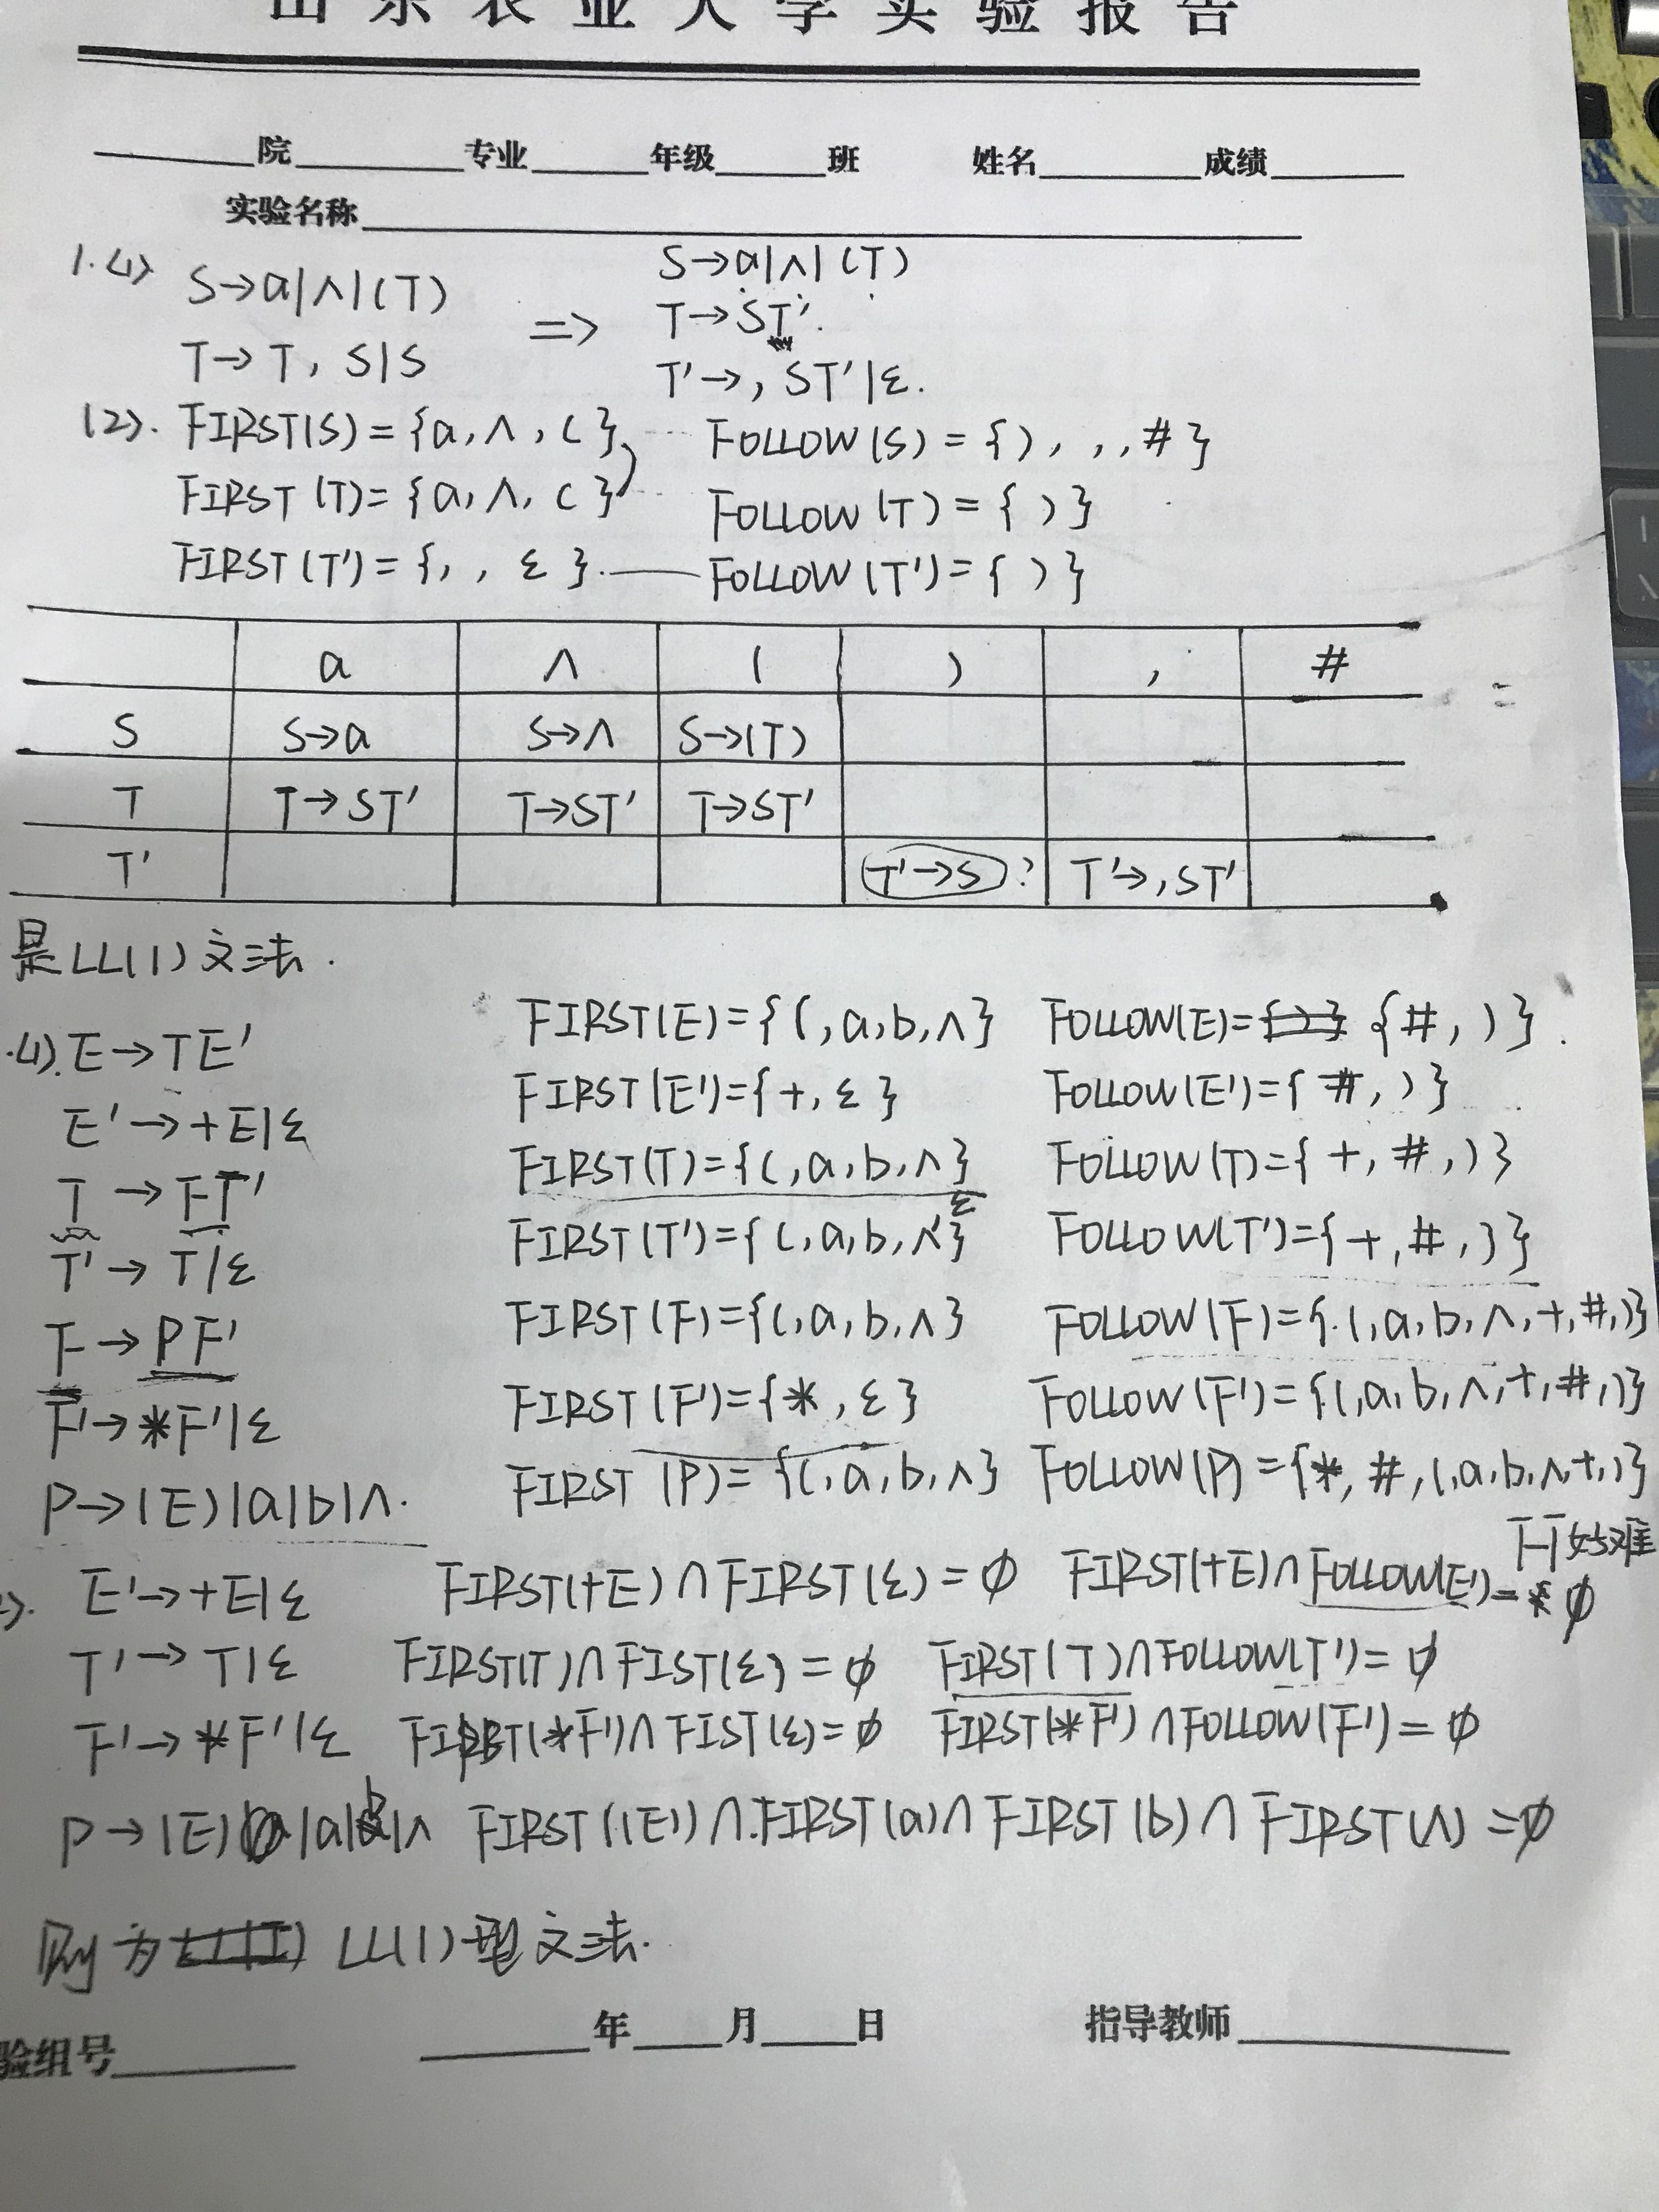 山东农业大学实验报告
院 专业 年级 班 姓名 成绩
实验名称
1.(1) S→a|∧|(T) S→a|∧|(T)
=> T→ST'.
T→T, S|S T'→, ST'|ε.
(2). FIRST(S)={a,∧,(} FOLLOW(S)={),,,#}
FIRST(T)={a,∧,(} FOLLOW(T)={)}
FIRST(T')={,,ε}. FOLLOW(T')={)}
a ∧ ( ) , #
S S→a S→∧ S→(T)
T T→ST' T→ST' T→ST'
T' T'→S? T'→,ST'
是LL(1)文法.
.(1). E→TE' FIRST(E)={(,a,b,∧} FOLLOW(E)={#,)}.
E'→+E|ε FIRST(E')={+,ε} FOLLOW(E')={#,)}
T→FT' FIRST(T)={(,a,b,∧} FOLLOW(T)={+,#,)}
T'→T|ε FIRST(T')={(,a,b,∧,ε} FOLLOW(T')={+,#,)}
F→PF' FIRST(F)={(,a,b,∧} FOLLOW(F)={(,a,b,∧,+,#,)}
F'→*F'|ε FIRST(F')={*,ε} FOLLOW(F')={(,a,b,∧,+,#,)}
P→(E)|a|b|∧. FIRST(P)={(,a,b,∧} FOLLOW(P)={*,#,(,a,b,∧,+,)}
好难
E'→+E|ε FIRST(+E)∩FIRST(ε)=∅ FIRST(+E)∩FOLLOW(E')=∅
T'→T|ε FIRST(T)∩FIST(ε)=∅ FIRST(T)∩FOLLOW(T')=∅
F'→*F'|ε FIRST(*F')∩FIST(ε)=∅ FIRST(*F')∩FOLLOW(F')=∅
P→(E)|a|b|∧ FIRST((E))∩FIRST(a)∩FIRST(b)∩FIRST(∧)=∅
则为 LL(1)型文法.
验组号 年 月 日 指导教师